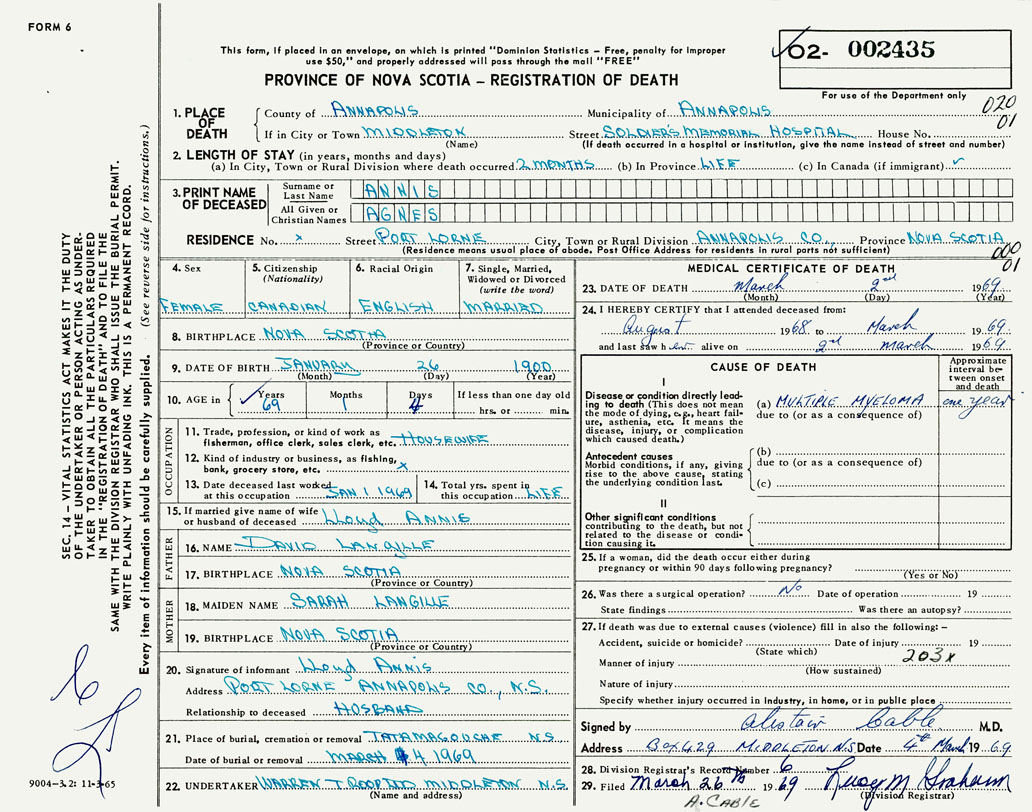 FORM 6
This form, if placed in an envelope, on which is printed "Dominion Statistics – Free, penalty for improper
use $50," and properly addressed will pass through the mail "FREE"
PROVINCE OF NOVA SCOTIA – REGISTRATION OF DEATH
02- 002435
For use of the Department only
020
01
1. PLACE OF DEATH
County of ANNAPOLIS Municipality of ANNAPOLIS
If in City or Town MIDDLETON Street SOLDIER'S MEMORIAL HOSPITAL House No.
(Name) (If death occurred in a hospital or institution, give the name instead of street and number)
2. LENGTH OF STAY (in years, months and days)
(a) In City, Town or Rural Division where death occurred 2 MONTHS (b) In Province LIFE (c) In Canada (if immigrant) ✓
3. PRINT NAME OF DECEASED
Surname or Last Name ANNIS
All Given or Christian Names AGNES
RESIDENCE No. x Street PORT LORNE City, Town or Rural Division ANNAPOLIS CO., Province NOVA SCOTIA
(Residence means usual place of abode. Post Office Address for residents in rural parts not sufficient)
000
01
4. Sex FEMALE
5. Citizenship (Nationality) CANADIAN
6. Racial Origin ENGLISH
7. Single, Married, Widowed or Divorced (write the word) MARRIED
8. BIRTHPLACE NOVA SCOTIA
(Province or Country)
9. DATE OF BIRTH JANUARY 26 1900
(Month) (Day) (Year)
10. AGE in ✓ Years 69 Months 1 Days 4 If less than one day old hrs. or min.
OCCUPATION
11. Trade, profession, or kind of work as fisherman, office clerk, sales clerk, etc. HOUSEWIFE
12. Kind of industry or business, as fishing, bank, grocery store, etc. x
13. Date deceased last worked at this occupation JAN 1 1969
14. Total yrs. spent in this occupation LIFE
15. If married give name of wife or husband of deceased Lloyd ANNIS
FATHER
16. NAME DAVID LANGILLE
17. BIRTHPLACE NOVA SCOTIA
(Province or Country)
MOTHER
18. MAIDEN NAME SARAH LANGILLE
19. BIRTHPLACE NOVA SCOTIA
(Province or Country)
20. Signature of informant Lloyd Annis
Address PORT LORNE ANNAPOLIS CO., N.S.
Relationship to deceased HOSBAND
21. Place of burial, cremation or removal TATAMAGOUCHE N.S.
Date of burial or removal MARCH 4 1969
22. UNDERTAKER WARREN T ROOP LTD MIDDLETON N.S.
(Name and address)
MEDICAL CERTIFICATE OF DEATH
23. DATE OF DEATH March 2nd 1969
(Month) (Day) (Year)
24. I HEREBY CERTIFY that I attended deceased from:
August 1968 to March 1969
and last saw her alive on 2nd march 1969
CAUSE OF DEATH
Approximate interval between onset and death
I
Disease or condition directly leading to death (This does not mean the mode of dying, e.g., heart failure, asthenia, etc. It means the disease, injury, or complication which caused death.)
(a) MULTIPLE MYELOMA one year
due to (or as a consequence of)
Antecedent causes
Morbid conditions, if any, giving rise to the above cause, stating the underlying condition last.
(b)
due to (or as a consequence of)
(c)
II
Other significant conditions contributing to the death, but not related to the disease or condition causing it.
25. If a woman, did the death occur either during pregnancy or within 90 days following pregnancy?
(Yes or No)
26. Was there a surgical operation? No Date of operation 19
State findings Was there an autopsy?
27. If death was due to external causes (violence) fill in also the following: –
Accident, suicide or homicide? Date of injury 19
(State which)
203x
Manner of injury
(How sustained)
Nature of injury
Specify whether injury occurred in industry, in home, or in public place
Signed by Alistair Cable M.D.
Address Box 429 MIDDLETON N.S Date 4th March 1969
28. Division Registrar's Record Number 6
29. Filed March 26th 1969 M Graham
(Division Registrar)
A. CABLE
SEC. 14 – VITAL STATISTICS ACT MAKES IT THE DUTY
OF THE UNDERTAKER OR PERSON ACTING AS UNDER-
TAKER TO OBTAIN ALL THE PARTICULARS REQUIRED
IN THE "REGISTRATION OF DEATH" AND TO FILE THE
SAME WITH THE DIVISION REGISTRAR WHO SHALL ISSUE THE BURIAL PERMIT.
WRITE PLAINLY WITH UNFADING INK. THIS IS A PERMANENT RECORD.
Every item of information should be carefully supplied. (See reverse side for instructions.)
9004-3.2: 11-3-65